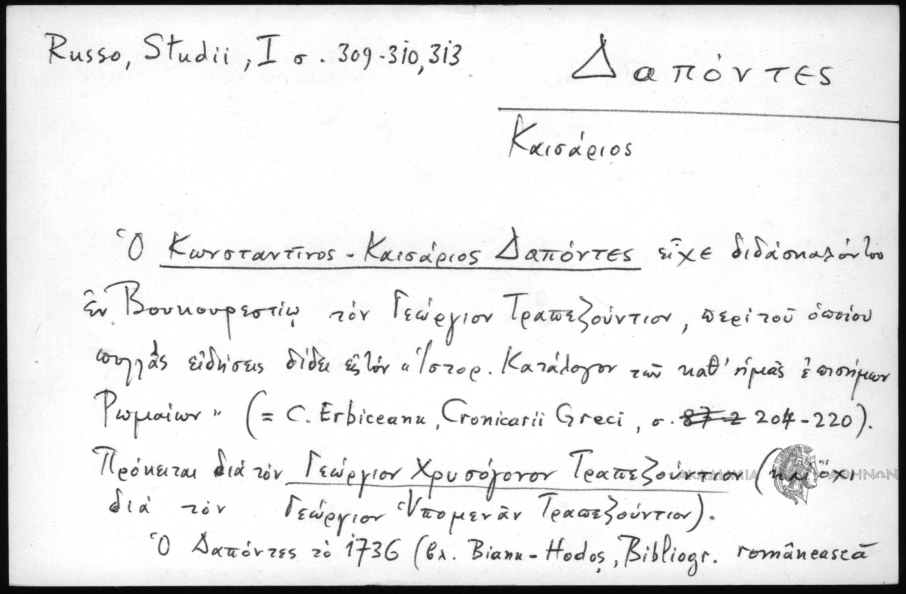 Russo, Studii, I σ. 309-310, 313
Δαπόντες
Καισάριος
Ὁ Κωνσταντῖνος - Καισάριος Δαπόντες εἶχε διδάσκαλόν του
ἐν Βουκουρεστίῳ τὸν Γεώργιον Τραπεζούντιον, περὶ τοῦ ὁποίου
πολλὰς εἰδήσεις δίδει εἰς τὸν «Ἱστορ. Κατάλογον τῶν καθ' ἡμᾶς ἐπισήμων
Ρωμαίων" (= C. Erbiceanu, Cronicarii Greci, σ. 204-220).
Πρόκειται διὰ τὸν Γεώργιον Χρυσόγονον Τραπεζούντιον (καὶ ὄχι
διὰ τὸν Γεώργιον Ὑπομενᾶν Τραπεζούντιον).
Ὁ Δαπόντες τὸ 1736 (βλ. Bianu-Hodoș, Bibliogr. românească
ΑΚΑΔΗΜΙΑ ΑΘΗΝΩΝ